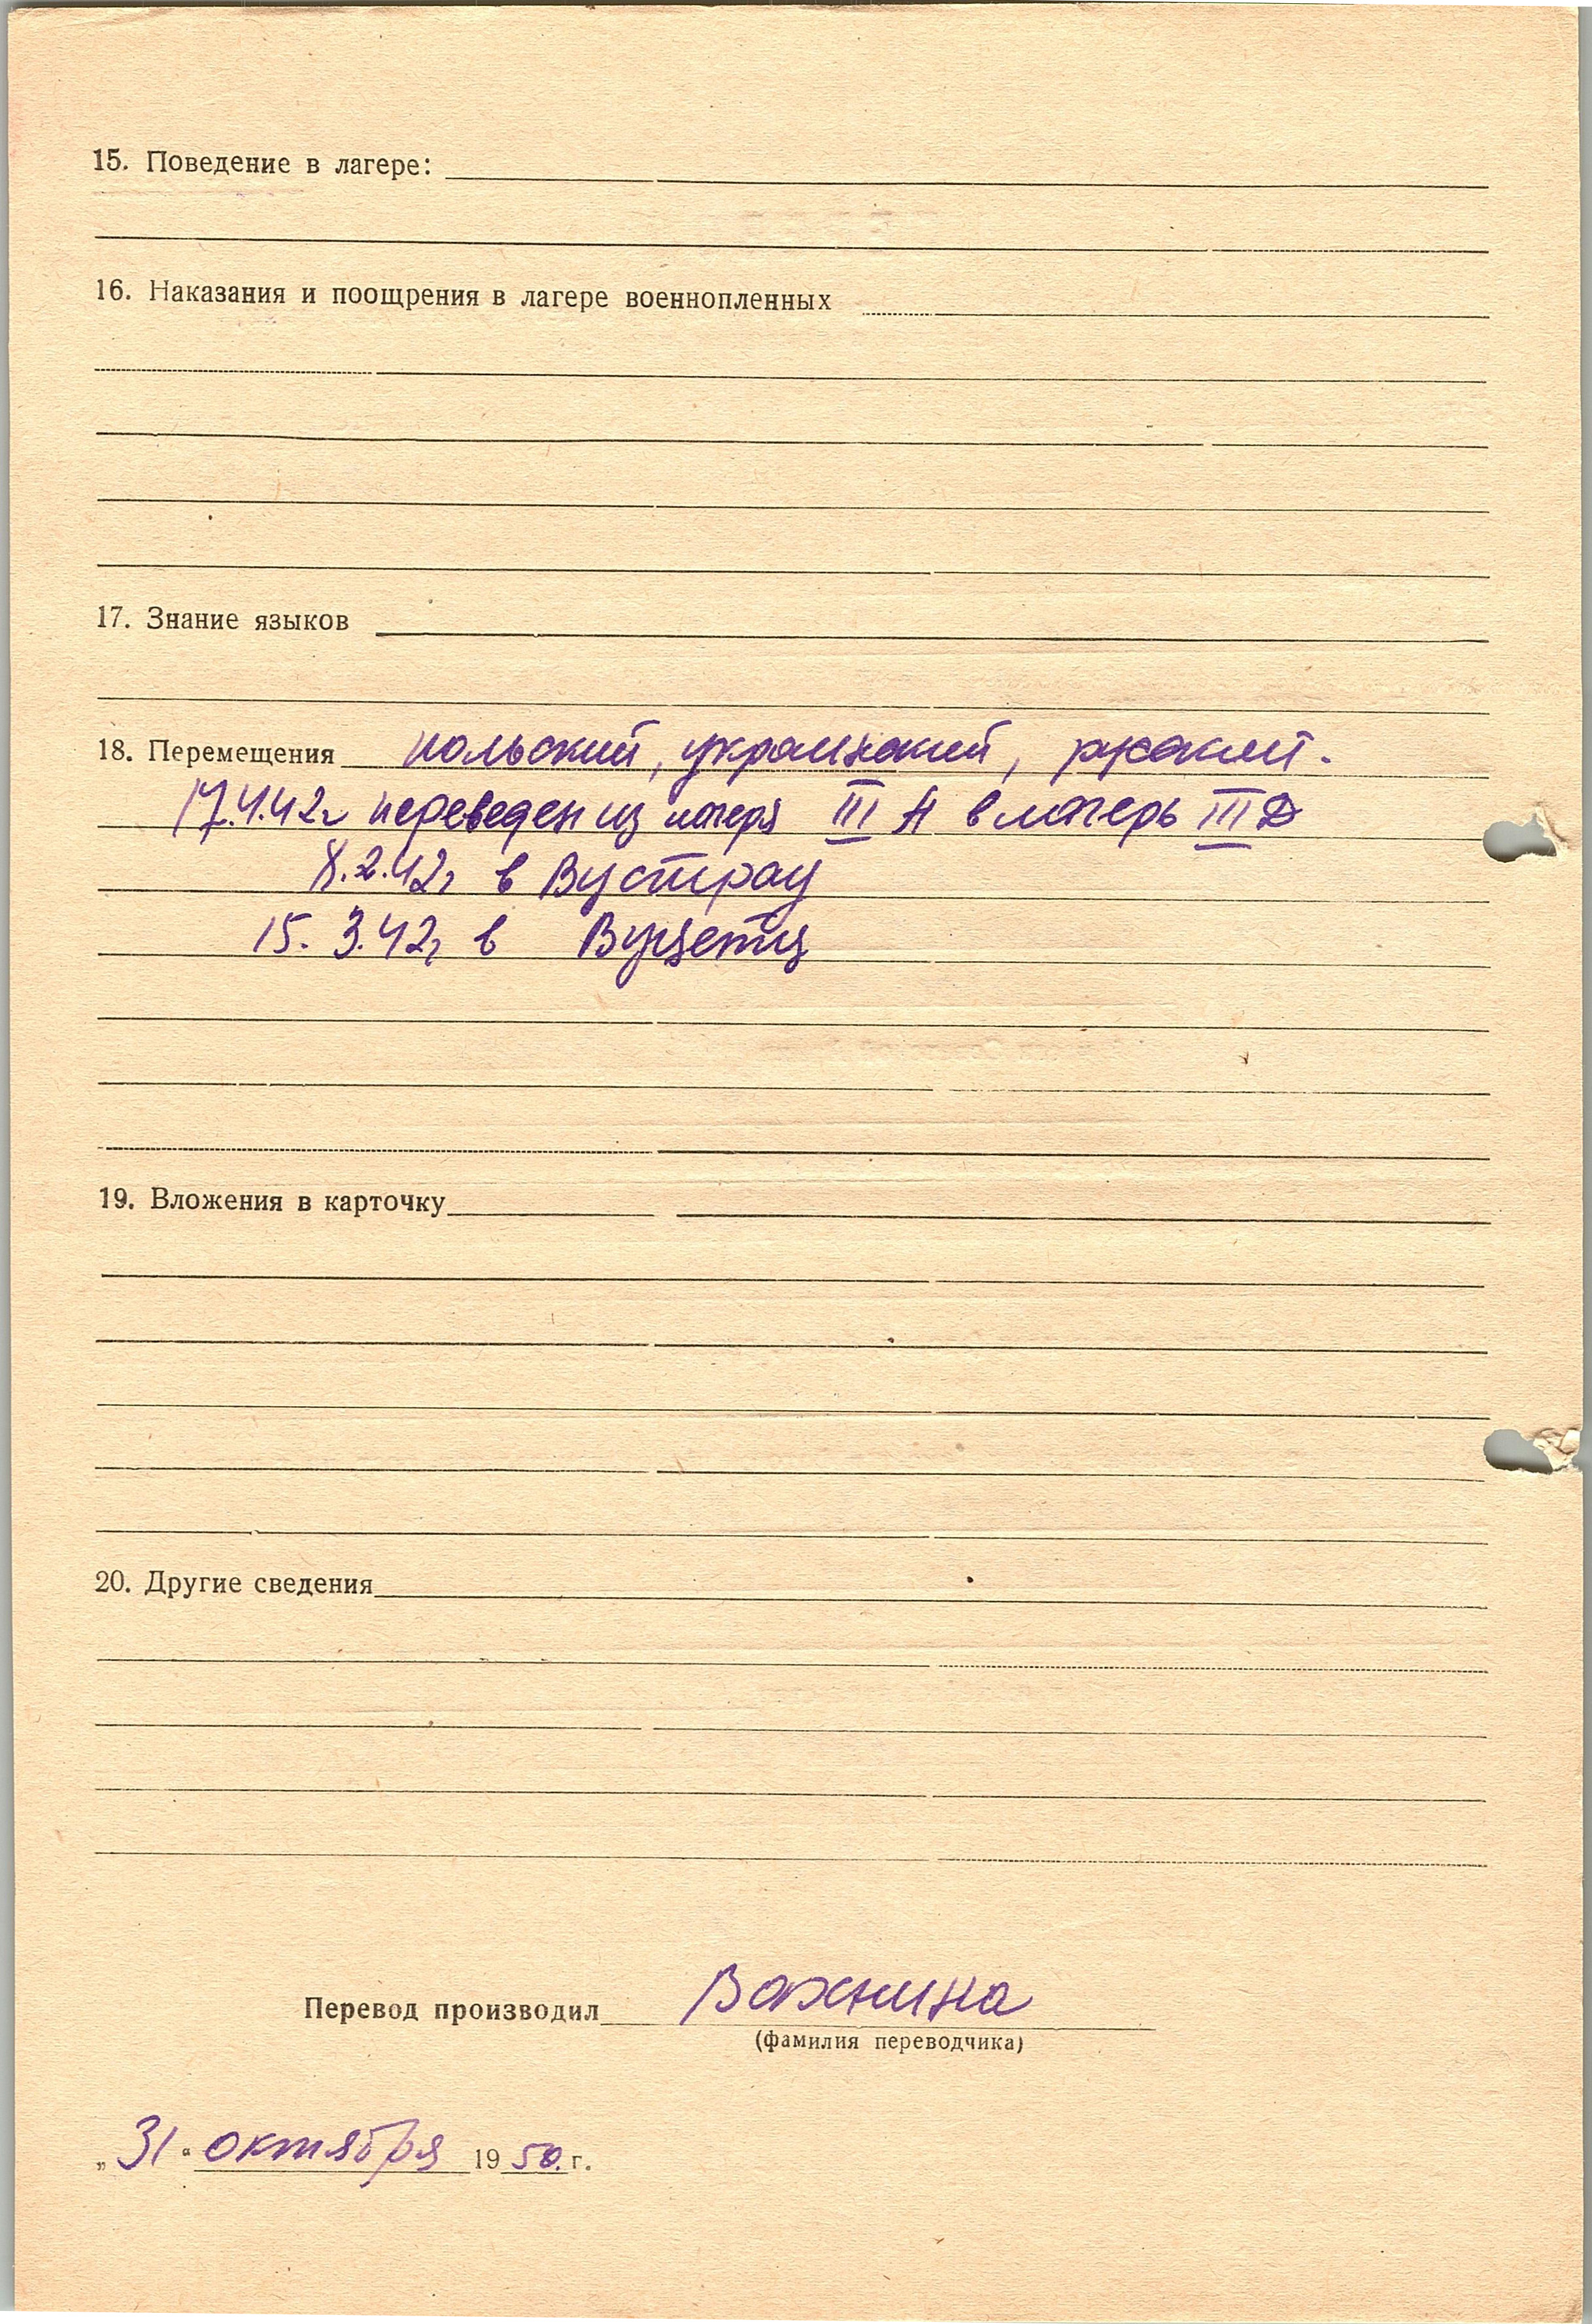 15. Поведение в лагере:
16. Наказания и поощрения в лагере военнопленных
17. Знание языков
18. Перемещения польский, украинский, русский.
17.4.42г переведен из лагеря III А в лагерь III Д
8.2.42г в Вустрау
15. 3.42г в Вуцетц
19. Вложения в карточку
20. Другие сведения
Перевод производил Важнина
(фамилия переводчика)
„31“ октября 1950.г.